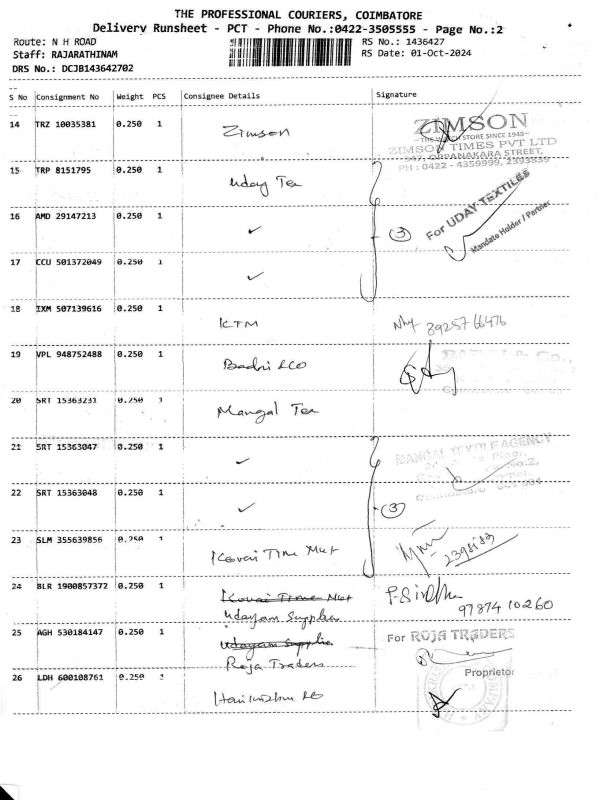 THE PROFESSIONAL COURIERS, COIMBATORE
Delivery Runsheet - PCT - Phone No.:0422-3505555 - Page No.:2
Route: N H ROAD
Staff: RAJARATHINAM
DRS No.: DCJB143642702
RS No.: 1436427
RS Date: 01-Oct-2024
S No Consignment No Weight PCS Consignee Details Signature
14 TRZ 10035381 0.250 1 Zimson
ZIMSON
THE WATCH STORE SINCE 1948
ZIMSON TIMES PVT LTD
347, OPPANAKARA STREET,
PH : 0422 - 4359999, 2393839
15 TRP 8151795 0.250 1 Uday Tex
16 AMD 29147213 0.250 1 ✓
3
For UDAY TEXTILES
Mandate Holder / Partner
17 CCU 501372049 0.250 1 ✓
18 IXM 507139616 0.250 1 KTM
8925766476
19 VPL 948752488 0.250 1 Badri &CO
& Co.,
20 SRT 15363231 0.250 1 Mangal Tex
21 SRT 15363047 0.250 1 ✓
MANGAL TEXTILE AGENCY
22 SRT 15363048 0.250 1 ✓
3
23 SLM 355639856 0.250 1 Kovai Time Mkt
2398183
24 BLR 1900857372 0.250 1 Kovai Time Mkt
Udayam Supplies
97874 10260
25 AGH 530184147 0.250 1 Udayam Supplie
Roja Traders
For ROJA TRADERS
Proprietor
26 LDH 600108761 0.250 1